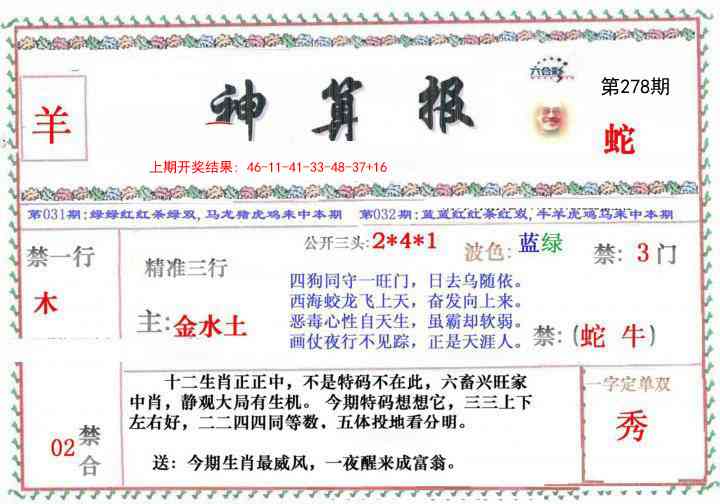 六合彩
第278期
羊
神算报
蛇
上期开奖结果：46-11-41-33-48-37+16
第031期:绿绿红红条绿双,马龙猪虎鸡来中本期 第032期:蓝蓝红红条红双,牛羊虎鸡马来中本期
禁一行
木
精准三行
主:金水土
公开三头:2*4*1
波色:蓝绿
禁:3门
四狗同守一旺门，日去乌随依。
西海蛟龙飞上天，奋发向上来。
恶毒心性自天生，虽霸却软弱。
画仗夜行不见踪，正是天涯人。
禁:(蛇 牛)
02
禁
合
十二生肖正正中，不是特码不在此，六畜兴旺家
中肖，静观大局有生机。 今期特码想想它，三三上下
左右好，二二四四同等数，五体投地看分明。
送：今期生肖最威风，一夜醒来成富翁。
一字定单双
秀